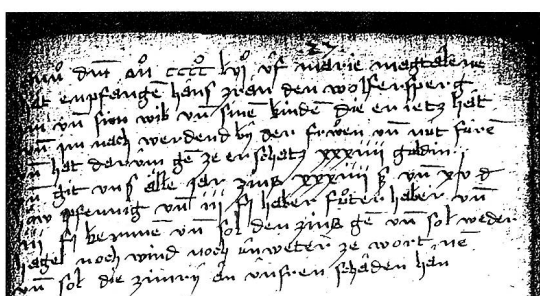 dn͞i an͞o cccc͞c lvj of marie magtalene
hat enpfangē hans den wolfersperg
vn̄ sin wib vn̄ sinē kindē die er ietz hat
vn̄ im nach werdend by der frowen vn̄ nüt fürē
vn̄ hat darum gē ze erschatz xxxiiij guldin
vn̄ git vns alle jar zins xxxiiij ß vn̄ xv d
pfennig vn̄ iij fl haber fůter haber vn̄
iij fl kernnē vn̄ sol den zins gē vn̄ sol weder
hagel noch wind noch vnweter ze wort nē
vn̄ sol die zimrij an vnsren schaden han